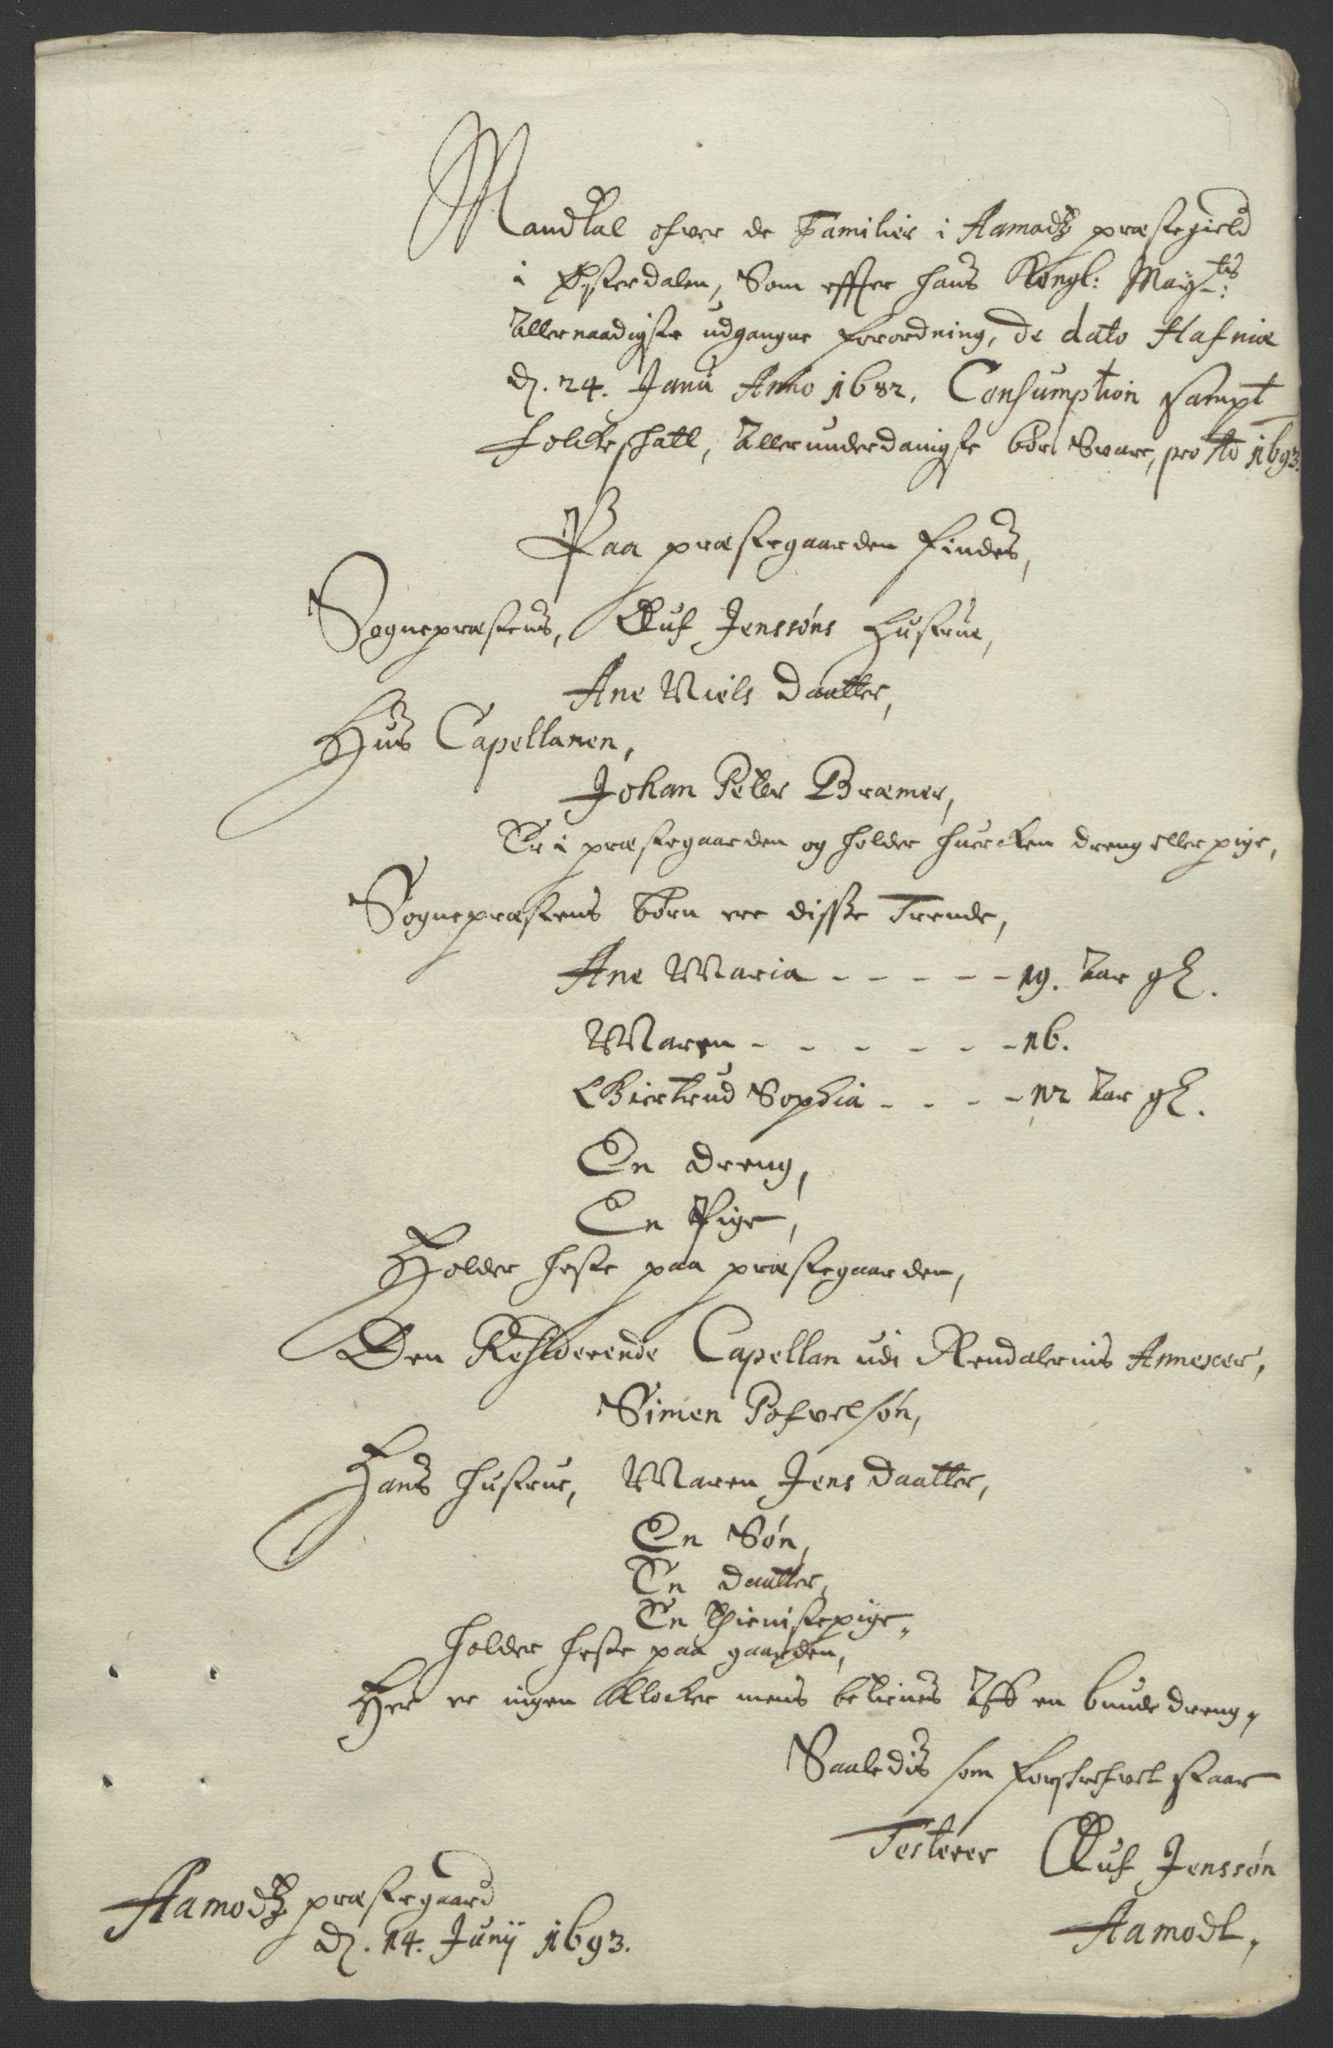 Mandtal ofver de Familier i Aamodtz præstegield
i Østerdalen, Som effter hans Kongl: May.ts:
Allernaadigste udgangne forordning, de dato Hafniæ
d. 24. Janu Anno 1682. Consumption sampt
folckeskatt, Allerunderdanigst bør Svare, pro Ao 1693.
Paa præstegaarden findes,
Sognepræstens, Oluf Jenssøns Hustrue,
Ane Niels daatter,
Hus Capellanen,
Johan Peter Bræmer,
Er i præstegaarden og holder huercken dreng eller pige,
Sognepræstens børn ere disse Trende,
Ane Maria - - - - - 19. Aar gl.
Maren - - - - - - 16.
Giertrud Sophia - - - - 12 Aar gl.
En dreng,
En Pige,
Holder heste paa præstegaarden,
Den Residerende Capellan udi Rendalernis Annexer,
Simen Pofvelsøn,
Hans hustrue, Maren Jens daatter,
En Søn,
En daatter,
En thienistepige,
holder heste paa gaarden,
Her er ingen Klocker mens betienes Aff en bunde dreng,
Saaledis som forskrefvet staar
Testerer Oluf Jenssøn
Aamodt,
Aamodtz præstegaard
d. 14. Junij 1693.